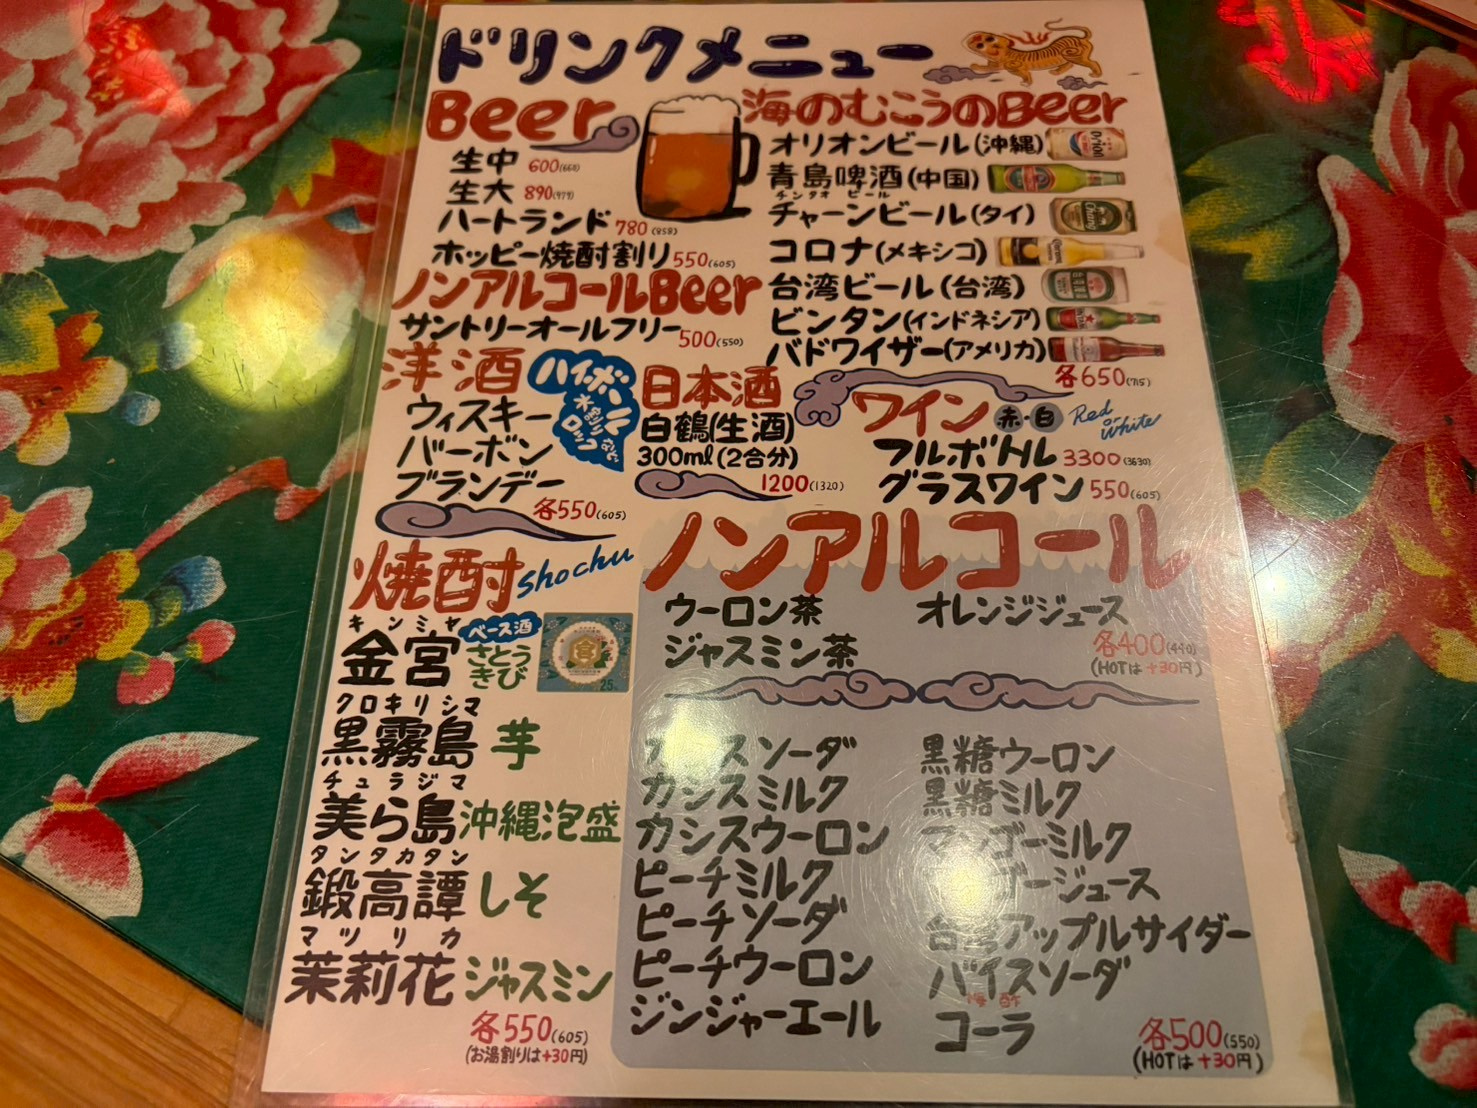 ドリンクメニュー
Beer
生中 600(660)
生大 890(979)
ハートランド 780(858)
ホッピー焼酎割り 550(605)
ノンアルコールBeer
サントリーオールフリー 500(550)
海のむこうのBeer
オリオンビール(沖縄)
Orion
青島啤酒(中国)
チンタオ ビール
チャーンビール(タイ)
コロナ(メキシコ)
台湾ビール(台湾)
ビンタン(インドネシア)
バドワイザー(アメリカ)
各650(715)
洋酒
ハイボール
水割り
ロック
ウィスキー
バーボン
ブランデー
各550(605)
日本酒
白鶴(生酒)
300ml(2合分)
1200(1320)
ワイン 赤・白 Red or White
フルボトル 3300(3630)
グラスワイン 550(605)
焼酎 shochu
キンミヤ
金宮 ベース酒 さとうきび
25%
クロキリシマ
黒霧島 芋
チュラジマ
美ら島 沖縄泡盛
タンタカタン
鍛高譚 しそ
マツリカ
茉莉花 ジャスミン
各550(605)
(お湯割りは+30円)
ノンアルコール
ウーロン茶 オレンジジュース
ジャスミン茶
各400(440)
(HOTは+30円)
カシスソーダ
カシスミルク
カシスウーロン
ピーチミルク
ピーチソーダ
ピーチウーロン
ジンジャーエール
黒糖ウーロン
黒糖ミルク
マンゴーミルク
マンゴージュース
台湾アップルサイダー
バイスソーダ
梅酢
コーラ
各500(550)
(HOTは+30円)